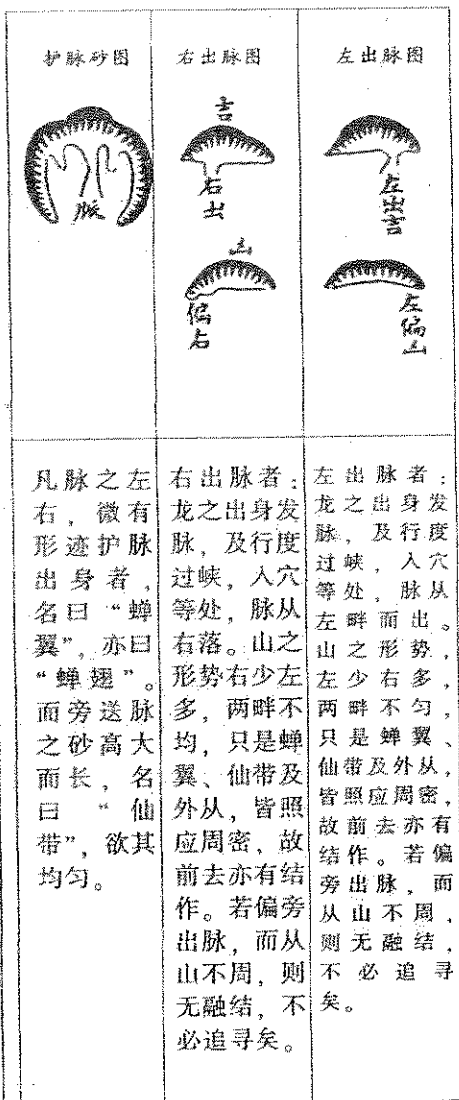 护脉砂图
脈
凡脉之左
右，微有
形迹护脉
出身者，
名曰“蝉
翼”，亦曰
“蝉翅”。
而旁送脉
之砂高大
而长，名
曰“仙
带”，欲其
均匀。
右出脉图
吉
右出
凶
偏右
右出脉者：
龙之出身发
脉，及行度
过峡，入穴
等处，脉从
右落。山之
形势右少左
多，两畔不
均，只是蝉
翼、仙带及
外从，皆照
应周密，故
前去亦有结
作。若偏旁
出脉，而从
山不周，则
无融结，不
必追寻矣。
左出脉图
左出吉
左偏凶
左出脉者：
龙之出身发
脉，及行度
过峡，入穴
等处，脉从
左畔而出。
山之形势，
左少右多，
两畔不匀，
只是蝉翼、
仙带及外从，
皆照应周密，
故前去亦有
结作。若偏
旁出脉，而
从山不周，
则无融结，
不必追寻
矣。